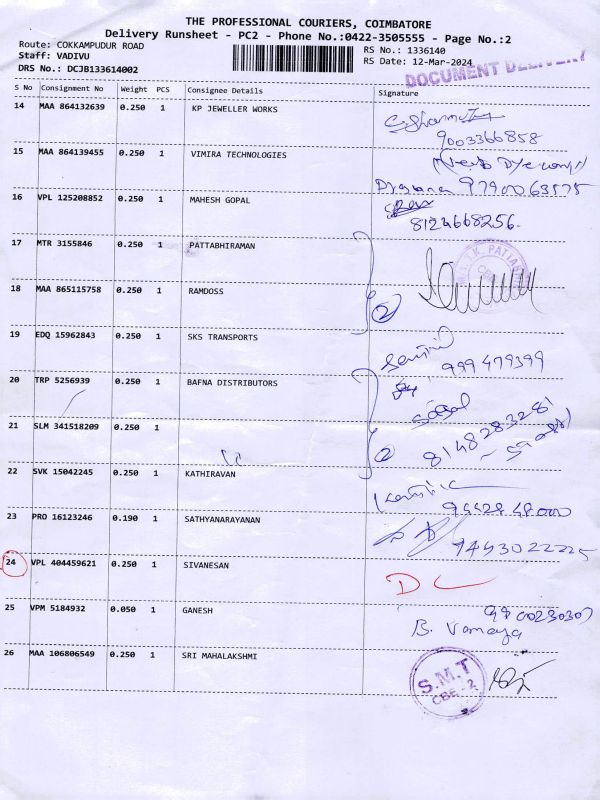 THE PROFESSIONAL COURIERS, COIMBATORE
Delivery Runsheet - PC2 - Phone No.:0422-3505555 - Page No.:2
Route: COKKAMPUDUR ROAD
Staff: VADIVU
DRS No.: DCJB133614002
RS No.: 1336140
RS Date: 12-Mar-2024
DOCUMENT DELIVERY
S No Consignment No Weight PCS Consignee Details Signature
14 MAA 864132639 0.250 1 KP JEWELLER WORKS
9003366858
15 MAA 864139455 0.250 1 VIMIRA TECHNOLOGIES
9790063575
16 VPL 125208852 0.250 1 MAHESH GOPAL
8124668256.
17 MTR 3155846 0.250 1 PATTABHIRAMAN
18 MAA 865115758 0.250 1 RAMDOSS
2
19 EDQ 15962843 0.250 1 SKS TRANSPORTS
999479399
20 TRP 5256939 0.250 1 BAFNA DISTRIBUTORS
21 SLM 341518209 0.250 1
2 8148283281
22 SVK 15042245 0.250 1 KATHIRAVAN
23 PRO 16123246 0.190 1 SATHYANARAYANAN
9443022225
24 VPL 404459621 0.250 1 SIVANESAN
DL
25 VPM 5184932 0.050 1 GANESH
B. Vanaya
26 MAA 106806549 0.250 1 SRI MAHALAKSHMI
S.M.T
CBE - 2